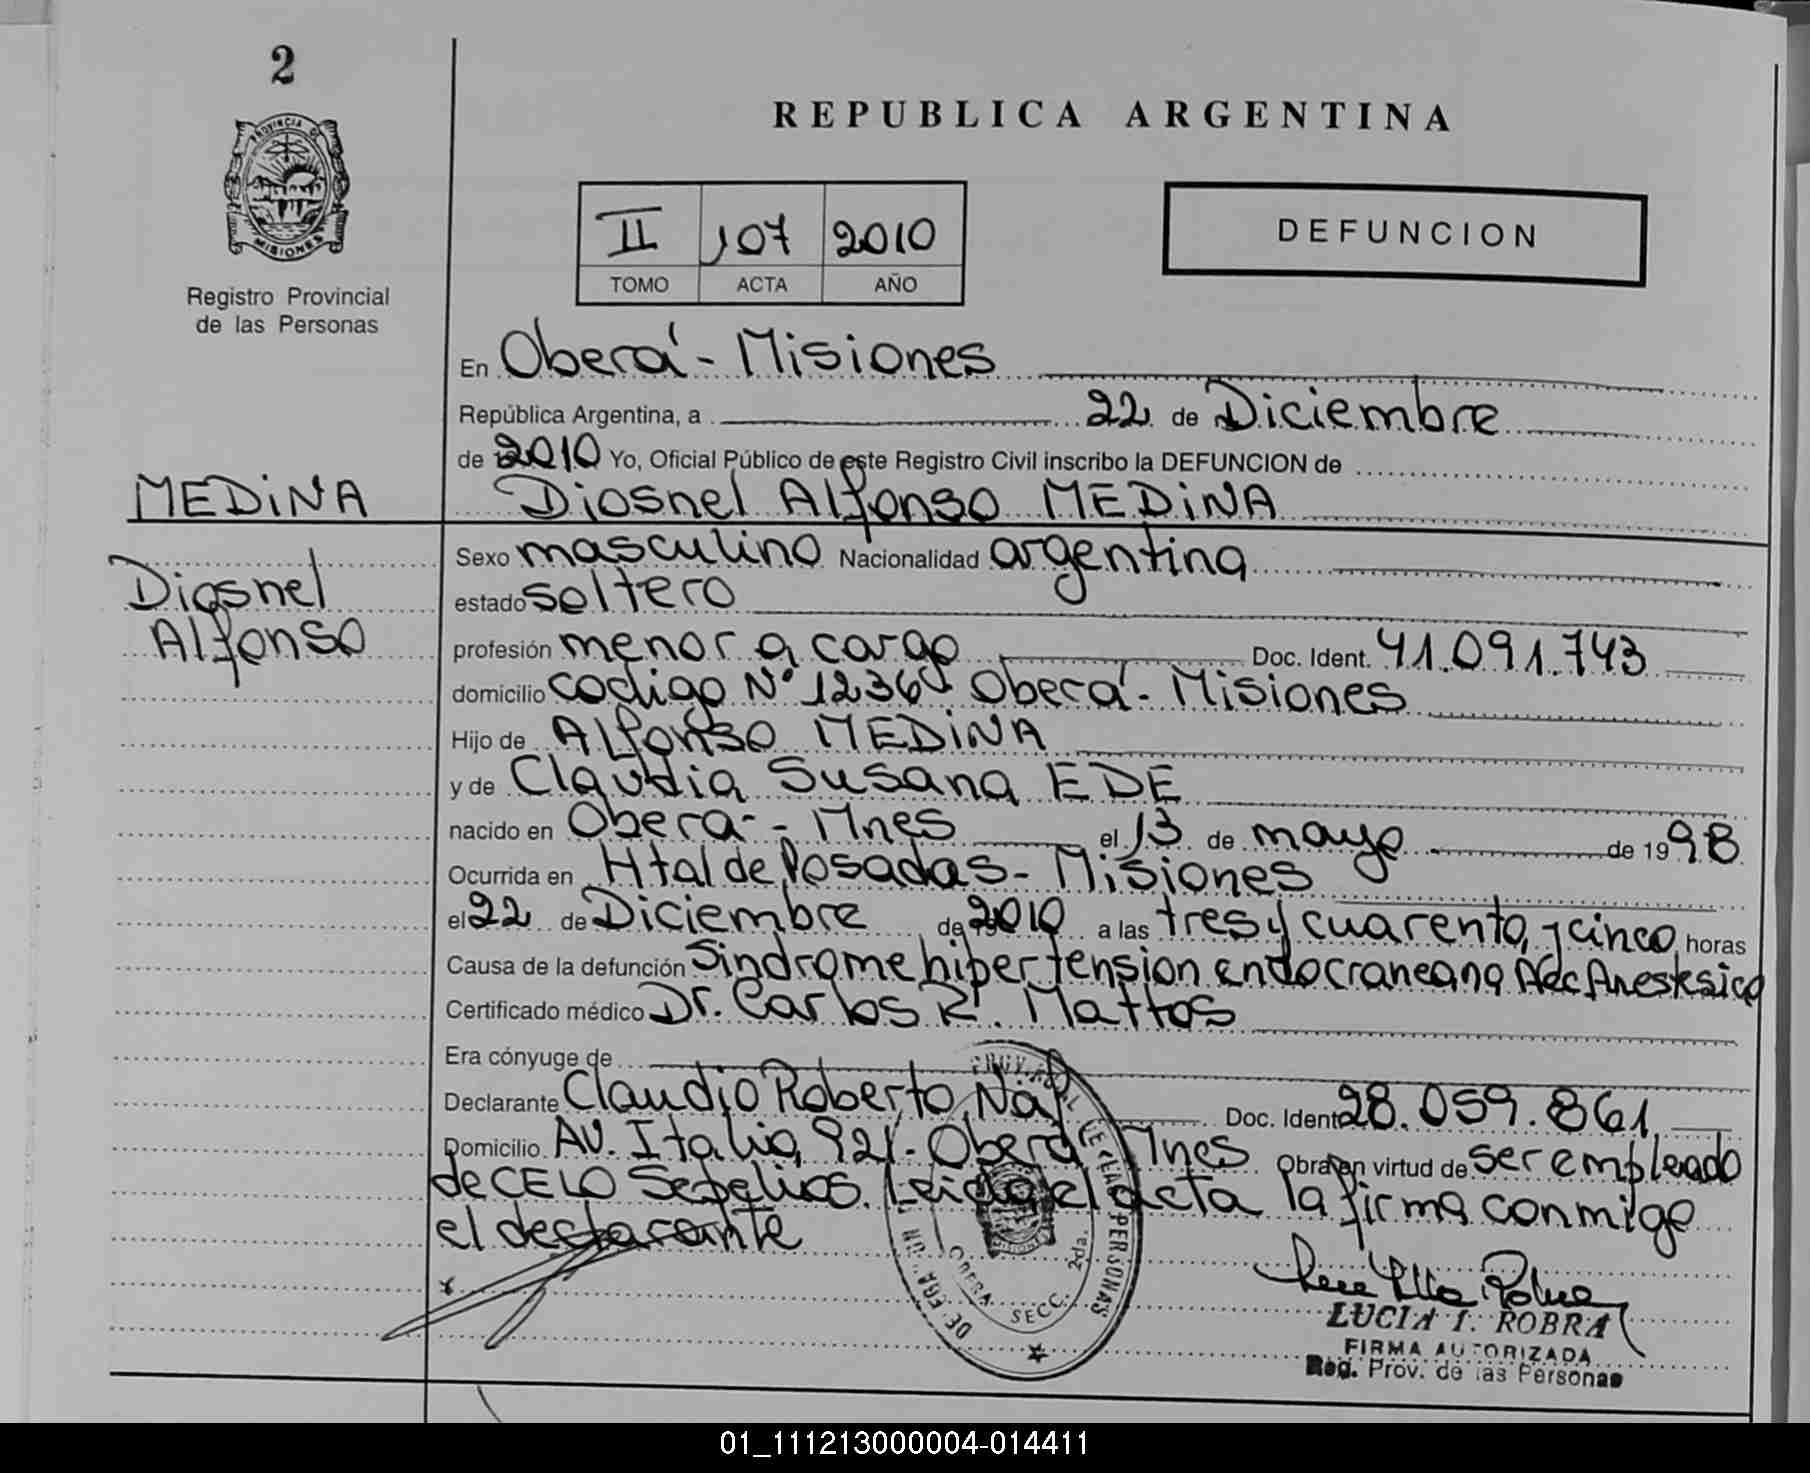 2
PROVINCIA DE
MISIONES
Registro Provincial
de las Personas
MEDINA
Diosnel
Alfonso
REPUBLICA ARGENTINA
II 107 2010
TOMO ACTA AÑO
DEFUNCION
En Oberá - Misiones
República Argentina, a 22 de Diciembre
de 2010 Yo, Oficial Público de este Registro Civil inscribo la DEFUNCION de
Diosnel Alfonso MEDINA
Sexo masculino Nacionalidad argentina
estado soltero
profesión menor a cargo Doc. Ident. 41.091.743
domicilio codigo Nº 1236 Oberá - Misiones
Hijo de Alfonso MEDINA
y de Claudia Susana EDE
nacido en Oberá - Mnes el 13 de mayo de 1998
Ocurrida en Htal de Posadas - Misiones
el 22 de Diciembre de 2010 a las tres y cuarenta y cinco horas
Causa de la defunción Sindrome hipertension endocraneana
Certificado médico Dr. Carlos R. Mattos
Era cónyuge de
Declarante Claudio Roberto Doc. Ident 28.059.861
Domicilio Av. Italia 921 - Oberá Mnes Obra en virtud de ser empleado
de CELO Sepelios. Leida el acta la firma conmigo
el
LUCIA I. ROBRA
FIRMA AUTORIZADA
Reg. Prov. de las Personas
PERSONAS
OBERA
SECC. 2da.
01_111213000004-014411